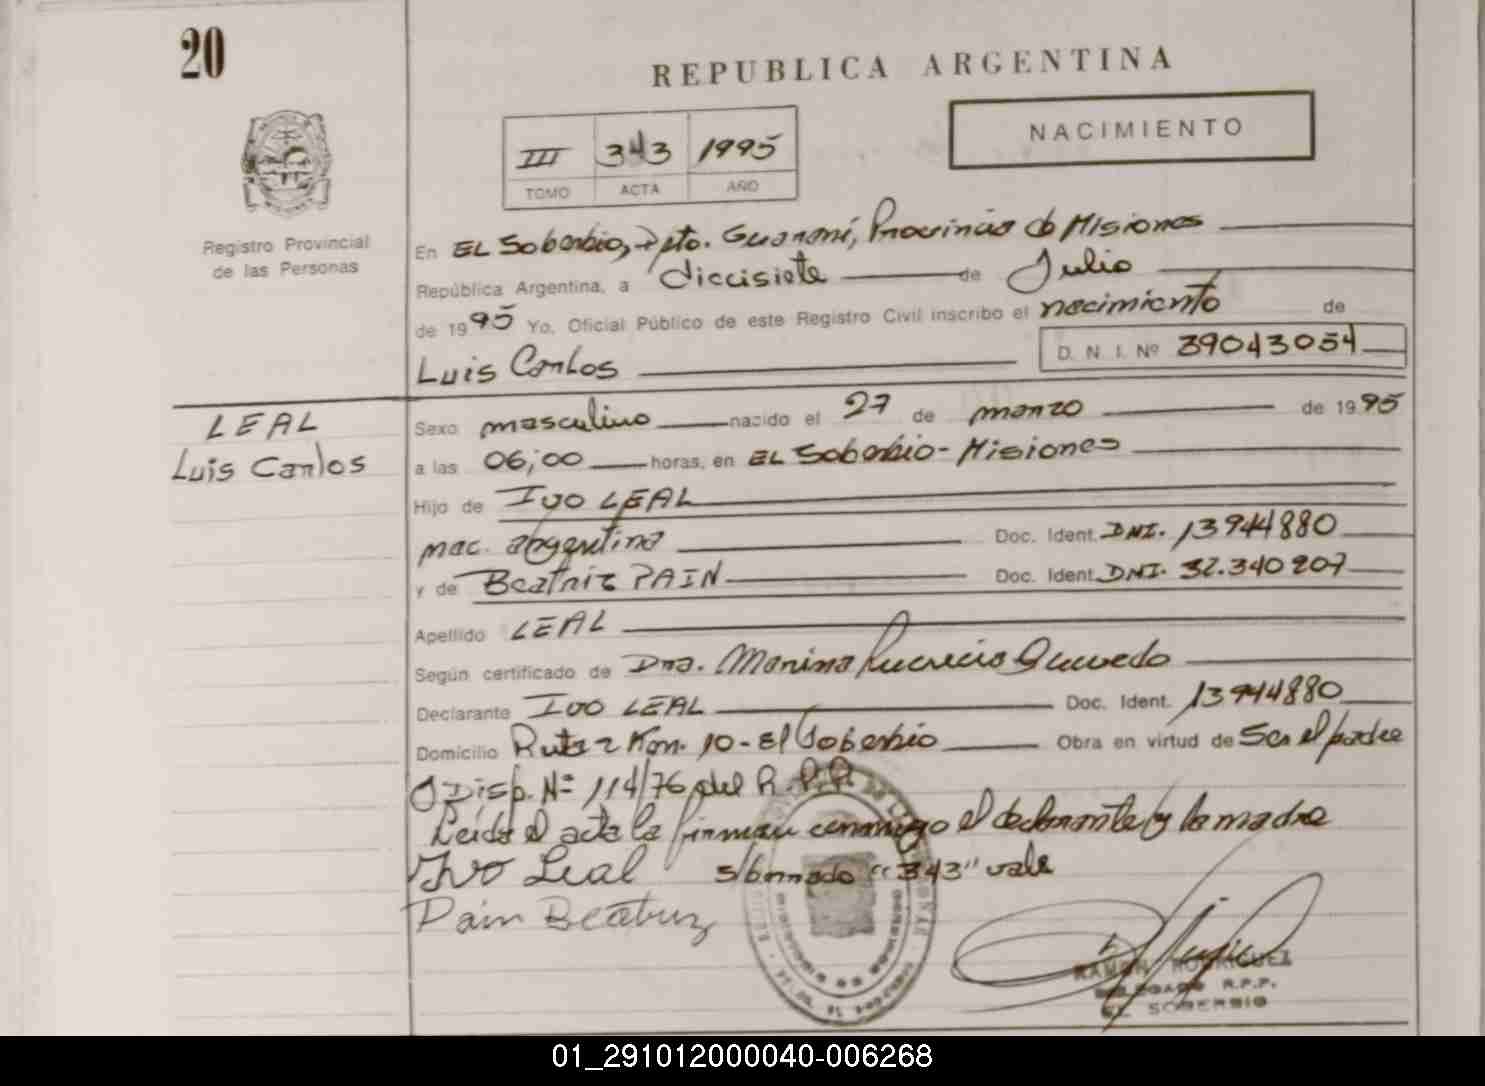 20
REPUBLICA ARGENTINA
NACIMIENTO
III 343 1995
TOMO ACTA AÑO
Registro Provincial
de las Personas
En EL Soberbio, Dpto. Guaraní, Provincia de Misiones
República Argentina, a diecisiete de Julio
de 1995 Yo, Oficial Público de este Registro Civil inscribo el nacimiento de
Luis Carlos D. N. I. Nº 39043054
LEAL
Luis Carlos
Sexo masculino nacido el 27 de marzo de 1995
a las 06;00 horas, en EL Soberbio - Misiones
Hijo de Ivo LEAL
nac. argentina Doc. Ident. DNI. 13944880
y de Beatriz PAIN Doc. Ident. DNI. 32.340207
Apellido LEAL
Según certificado de Dra. Marina Lucrecia Quevedo
Declarante Ivo LEAL Doc. Ident. 13944880
Domicilio Ruta 2 Km. 10 - El Soberbio Obra en virtud de Ser el padre
Disp. Nº 114/76 del R.P.P.
Leída el acta la firman conmigo el declarante y la madre
Ivo Leal s/borrado "343" vale
Pain Beatriz
RAMON RODRIGUEZ
DELEGADO R.P.P.
EL SOBERBIO
01_291012000040-006268